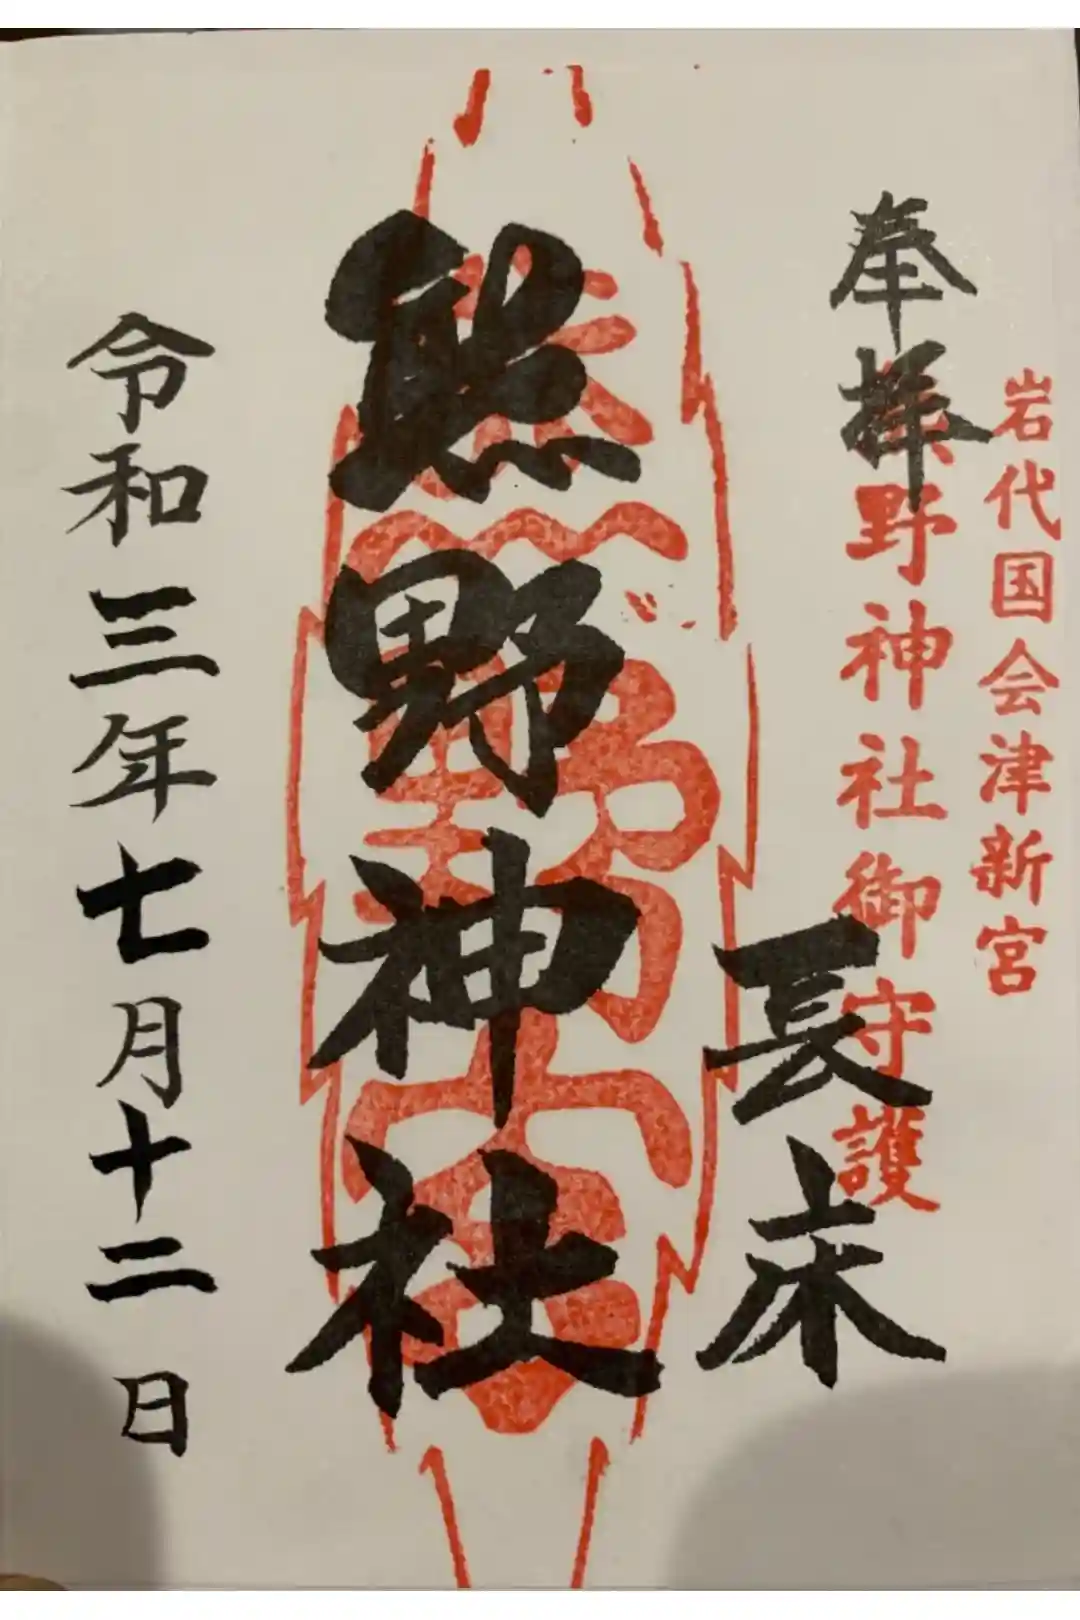 岩代国会津新宮
熊野神社御守護
奉拝
長床
熊野神社
令和三年七月十二日